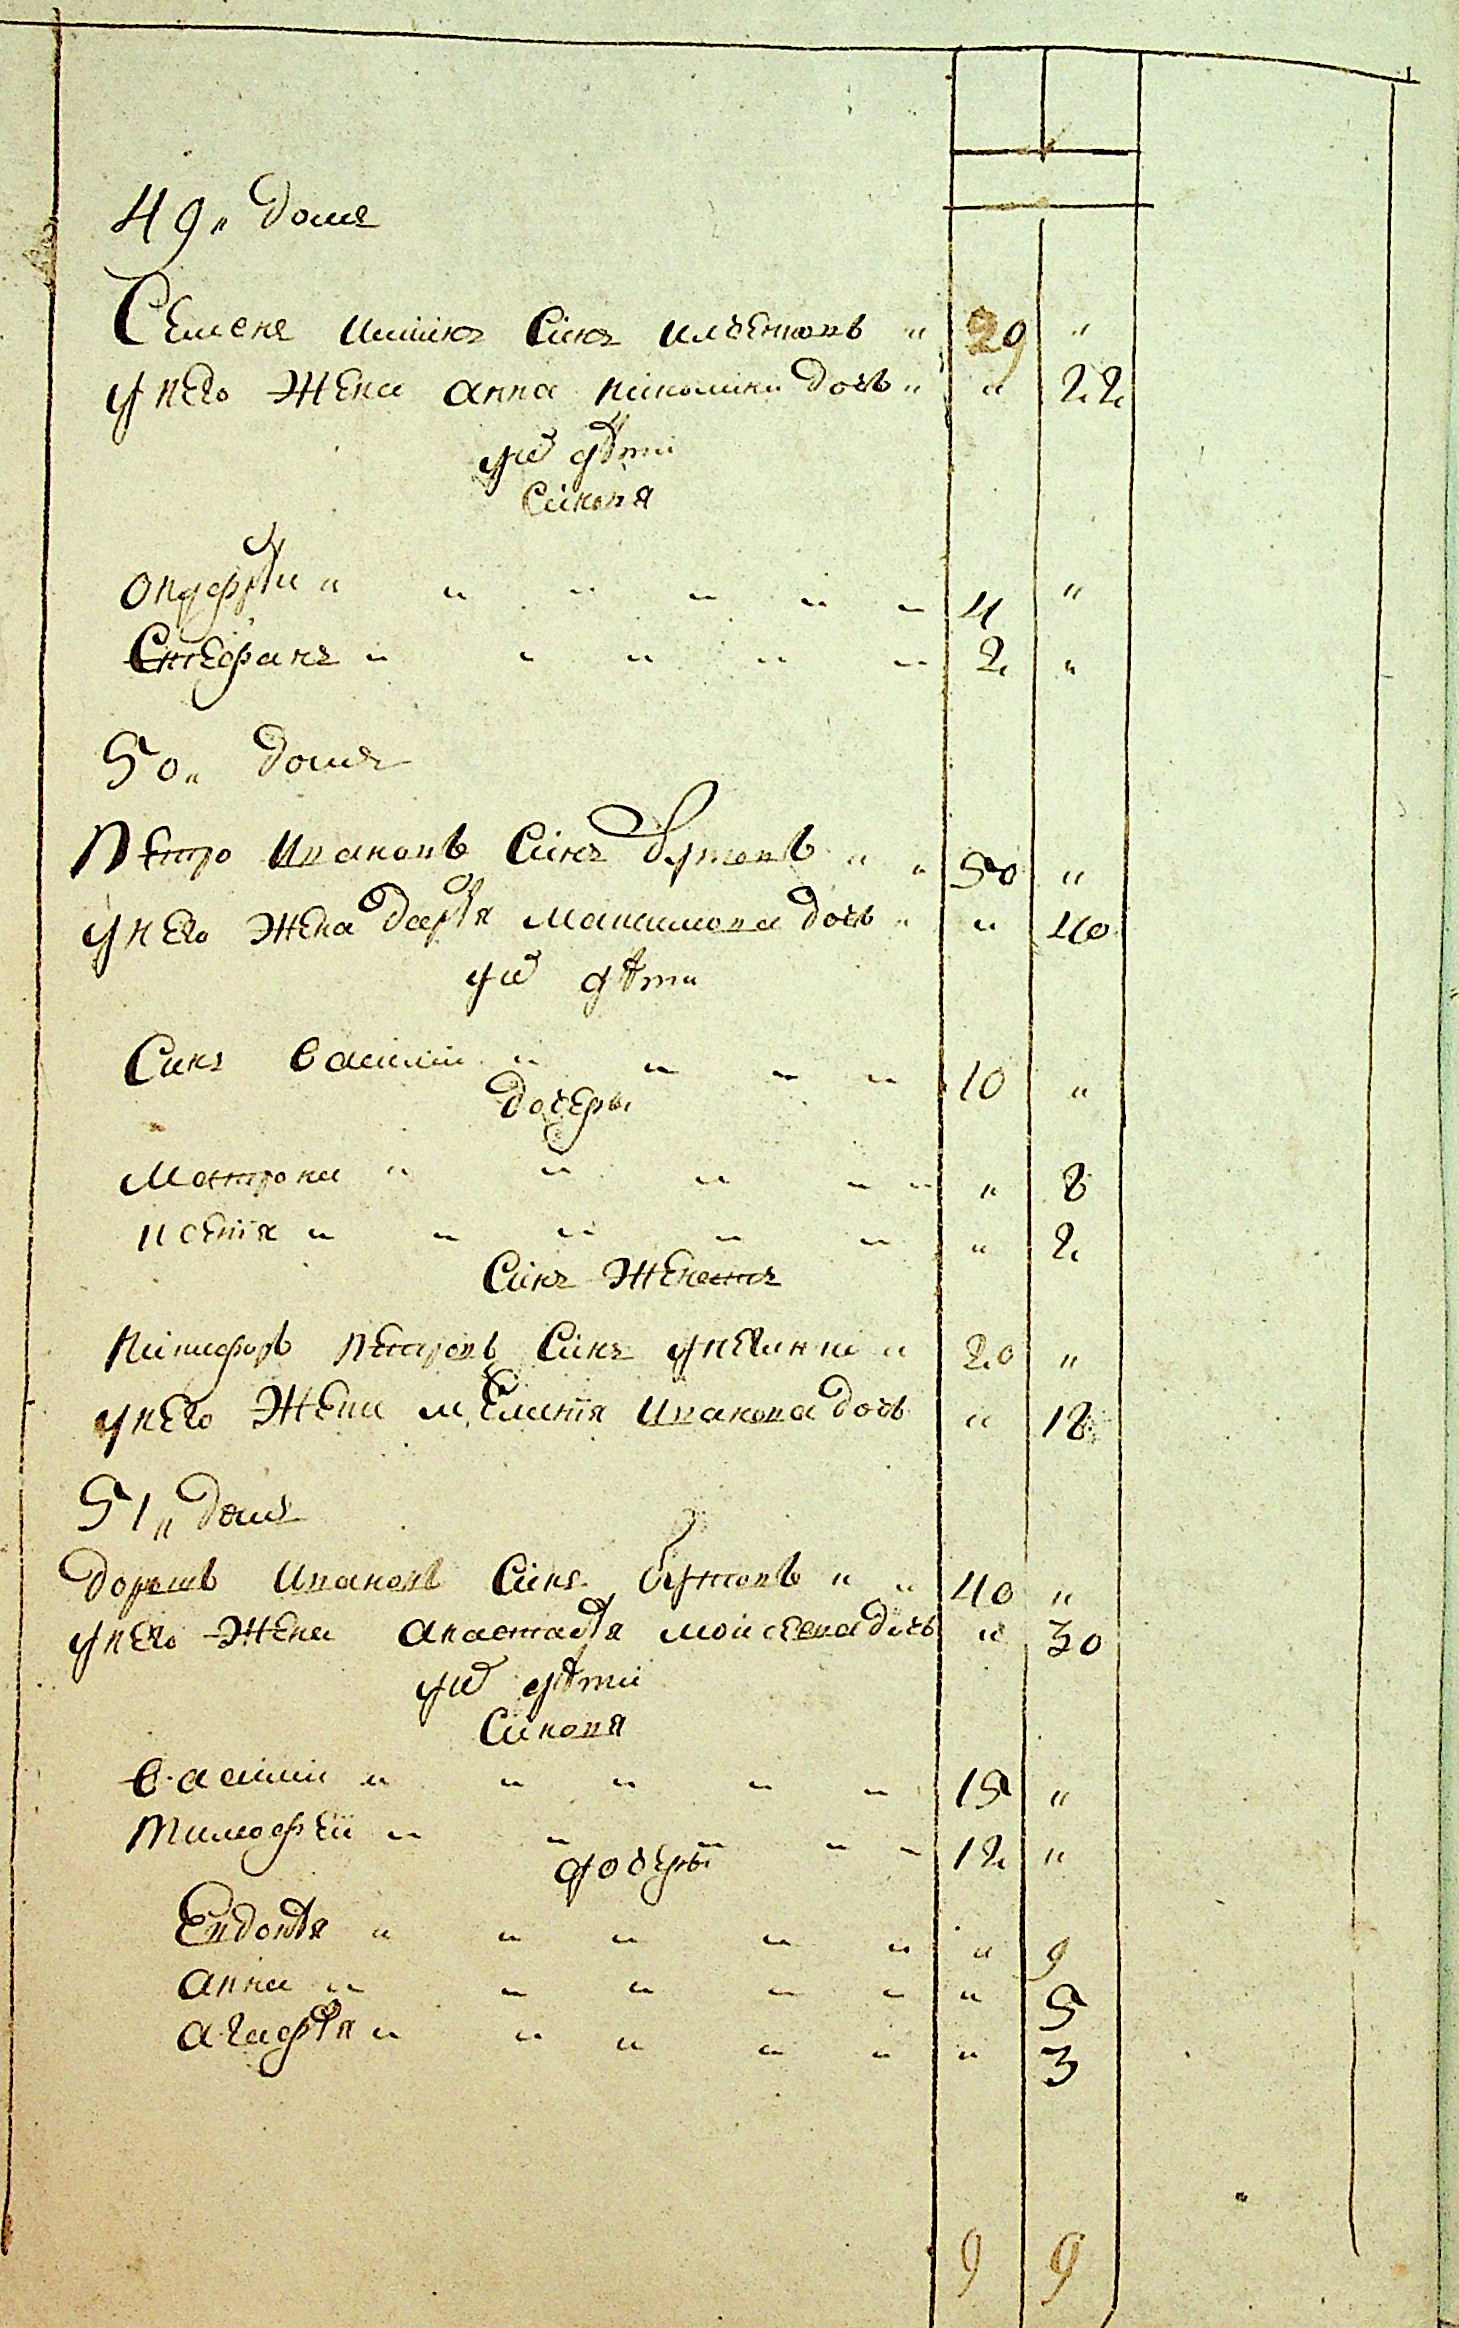 49„ домъ
Семенъ илиинъ синъ илчентовъ „ 29 „
у него жена анна николина дочъ „ „ 22
ихъ дѣти
синовя
ондрѣи „ „ „ „ „ „ 4 „
Стефанъ „ „ „ „ „ 2 „
50„ домъ
Петро ивановъ синъ бутовъ „ „ 50 „
у него жена дария максимова дочъ „ „ 40
ихъ дѣти
Синъ василии „ „ „ „ 10 „
дочеры
Мотрона „ „ „ „ „ „ 8
ксения „ „ „ „ „ „ 2
Синъ женатъ
никифоръ петровъ синъ „ 20 „
у него жена мелания иванова дочъ „ 18
51„ домъ
дорошъ ивановъ синъ бутовъ „ „ 40 „
у него жена анастасия моисеева дочъ „ 30
ихъ дѣти
Синовя
василии „ „ „ „ „ 15 „
тимофеи „ „ „ „ „ 12 „
дочеры
Евдокия „ „ „ „ „ „ 9
анна „ „ „ „ „ „ 5
агафия „ „ „ „ „ „ 3
9 9